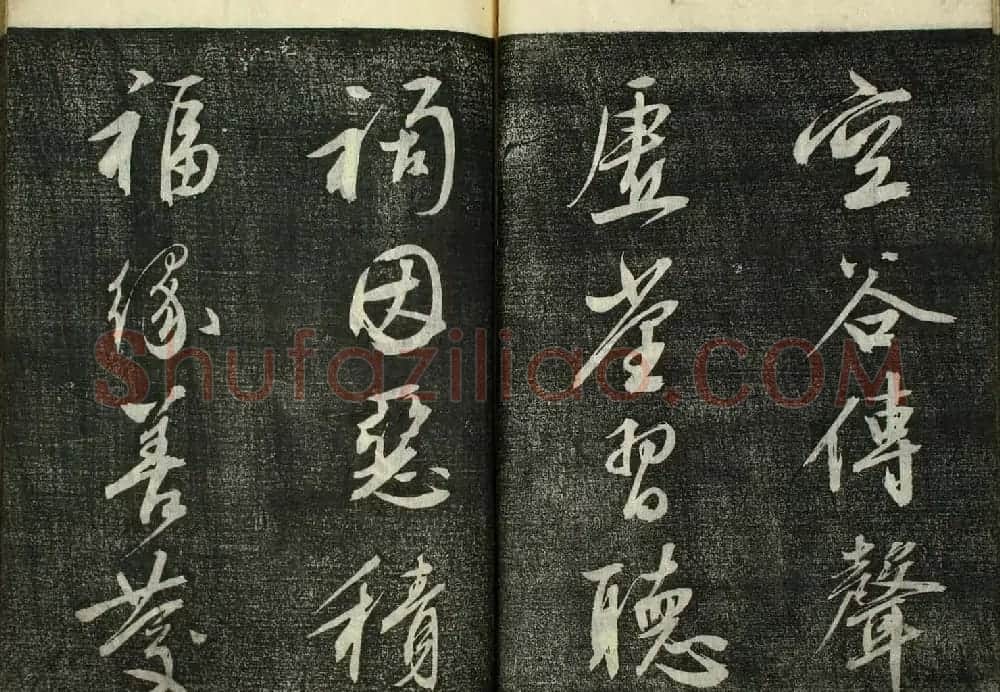 空谷傳聲
虛堂習聽
禍因惡積
福緣善慶
Shufaziliao.COM